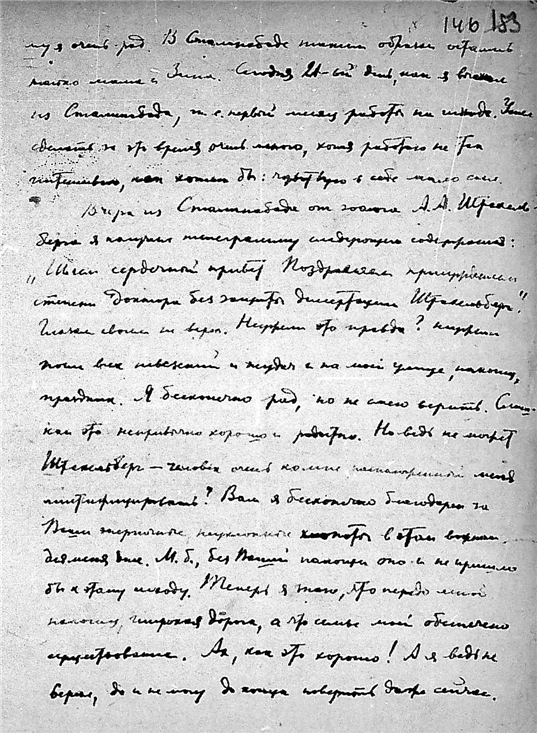 146 183
му я очень рад. В Сталинабаде таким образом остались
только мама и Зина. Сегодня 21-ый день, как я выехал
из Сталинабада, т.е. первый месяц работы на исходе. Успел
сделать за это время очень много, хотя работаю не так
интенсивно, как хотел бы: чувствую в себе мало сил.
Вчера из Сталинабада от зоолога А.А. Штакель-
берга я получил телеграмму следующего содержания:
"Шлем сердечный привет Поздравляем присуждением
степени Доктора без защиты диссертации Штакельберг".
Глазам своим не верю. Неужели это правда? неужели
после всех невезений и неудач и на моей улице, наконец,
праздник. Я бесконечно рад, но не смею верить. Слиш-
ком это непривычно хорошо и радостно. Но ведь не может
Штакельберг — человек очень ко мне расположенный меня
мистифицировать? Вам я бесконечно благодарен за
Ваши энергичные, неуклонные хлопоты в этом важном
для меня деле. М.б., без Вашей помощи оно и не пришло
бы к этому исходу. Теперь я знаю, что передо мной
наконец, широкая дорога, а что семье моей обеспечено
существование. Ах, как это хорошо! А я ведь не
верил, да и не могу до конца поверить даже сейчас.